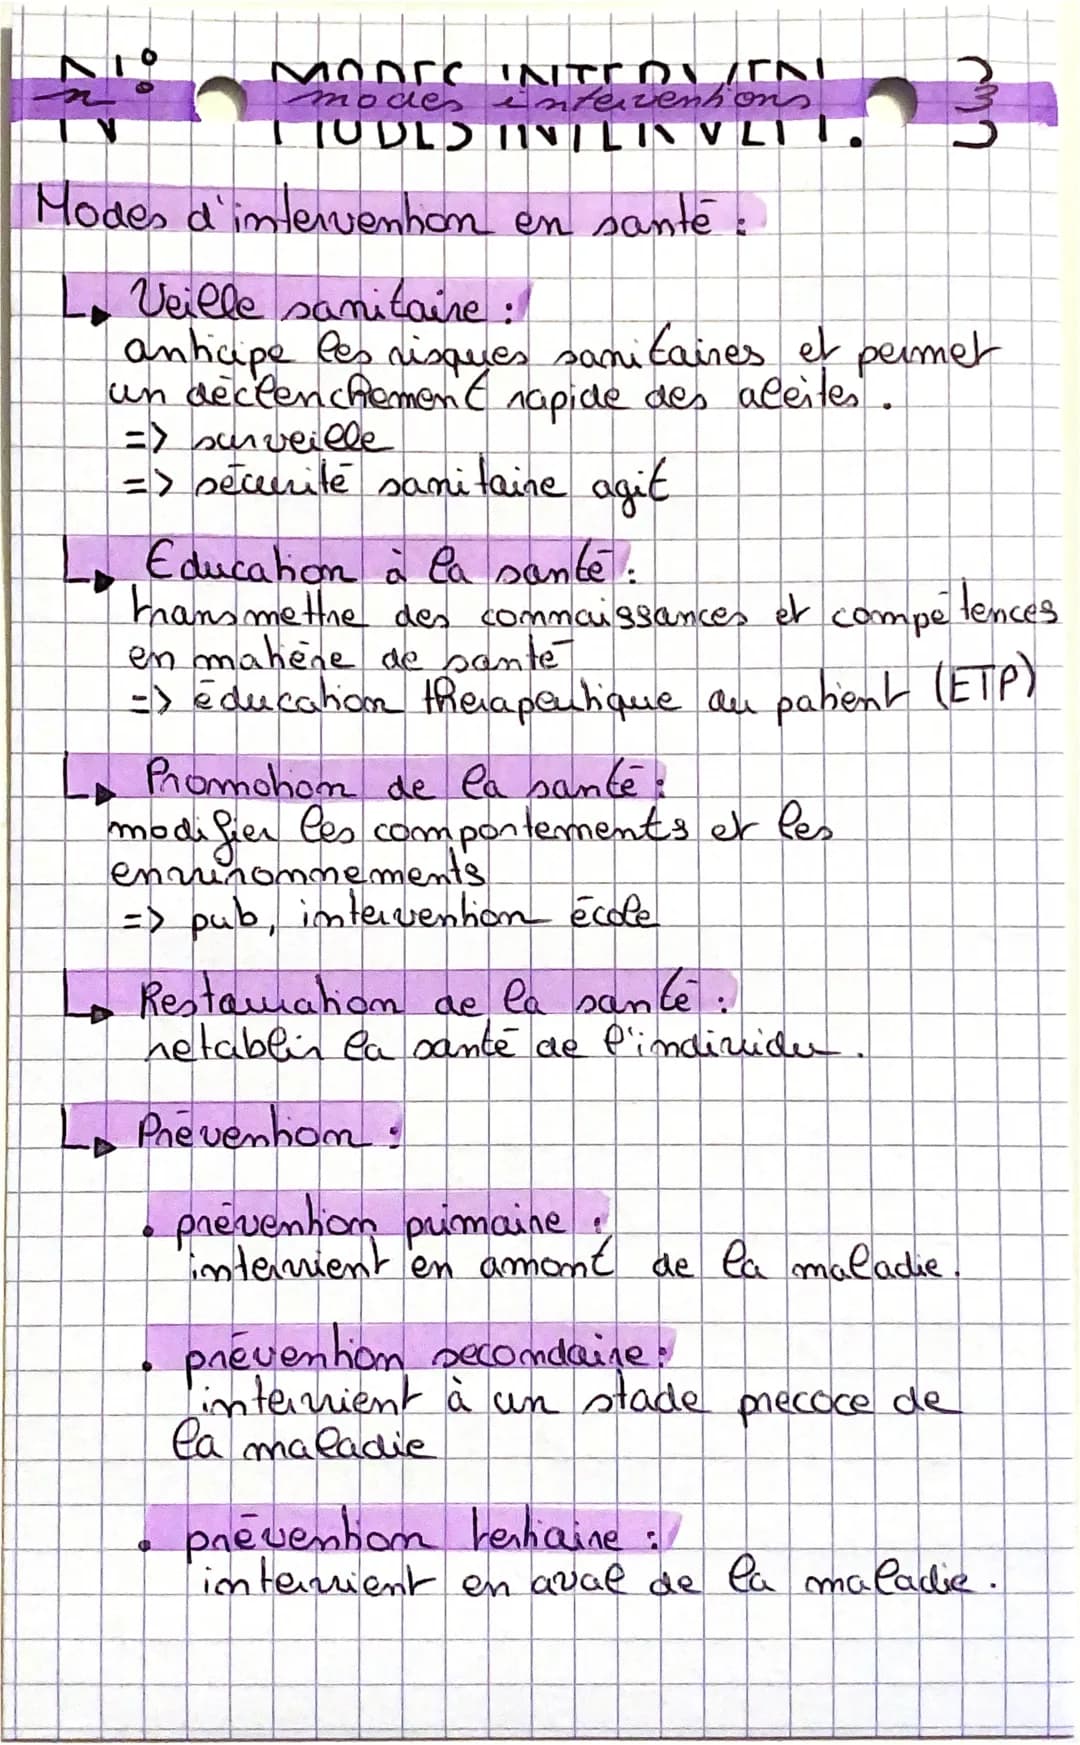 N° MODES INTERVENT. 3
n° modes interventions
Modes d'intervention en santé :
Veille sanitaire :
anticipe les risques sanitaires et permet
un déclenchement rapide des alertes.
=> surveille
=> sécurité sanitaire agit
Education à la santé :
transmettre des connaissances et compétences
en matière de santé
=> éducation thérapeutique au patient (ETP)
Promotion de la santé :
modifier les comportements et les
environnements
=> pub, intervention école
Restauration de la santé :
retablir la santé de l'individu.
Prévention :
• prévention primaire :
intervient en amont de la maladie.
• prévention secondaire :
intervient à un stade precoce de
la maladie
• prévention tertiaire :
intervient en aval de la maladie.